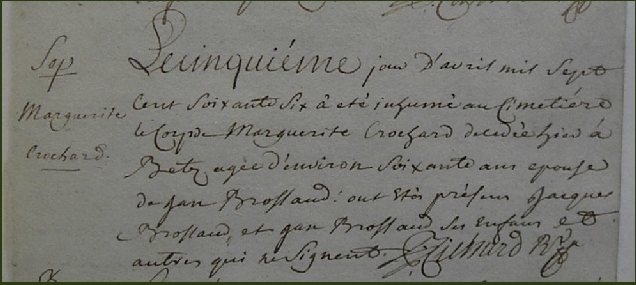 Sep
Marguerite
Crochard.
Le cinquiéme jour d'avril mil Sept
Cent Soixante Six à eté inhumé au Cimetiére
le Corps de Marguerite Crochard decedée hier à
Betz agée d'environ Soixante ans epouse
de jan Brossaud: ont Etés présens Jacques
Brossaud, et jan Brossaud ses Enfans et
autres qui ne Signent.